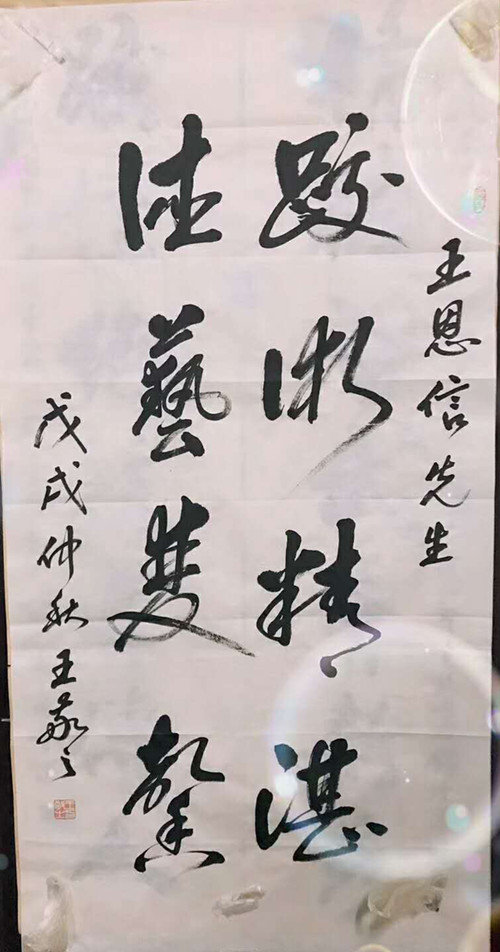 王恩信先生
跤術精湛
德藝雙馨
戊戌仲秋王敬之